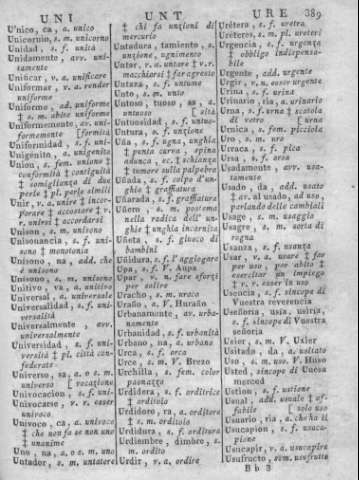 UNI UNT URE 389
Unico, ca, a. unico
Unicornio, s. m. unicorno
Unidad, s. f. unità
Unidamente, avv. unitamente
Unificar, v. a. unificare
Uniformar, v. a. render uniforme
Uniforme, ad. uniforme
‡ s. m. abito uniforme
Uniformemente, av. uniformemente [formità
Uniformidad, s. f. uni-
Unigénito, a. unigenito
Union, s. f. unione ‡
conformità ‡ contiguità
‡ somiglianza di due
perle ‡ pl. perle simili
Unir, v. a. unire ‡ incorporare ‡ accostare ‡ v.
r. unirsi ‡ accordarsi
Unison, s. m. unisono
Unisonancia, s. f. unisono ‡ monotonia
Unisono, na, add. che
è unisono
Unisono, s. m. unisono
Unitivo, va, a. unitivo
Universal, a. universale
Universalidad, s. f. universalità
Universalmente, avv.
universalmente
Universidad, s. f. università ‡ pl. città confederate
Universo, sa, a. o s. m.
universo [vocazione
Univocacion, s. f. uni-
Univocarse, v. r. esser
univoco
Univoco, ca, a. univoco
‡ che non fa se non uno
‡ unanime
Uno, na, a. o s. m. uno
Untador, s. m. untatore
‡ chi fa unzioni di
mercurio
Untadura, tamiento, s.
unzione, ugnimento
Untar, v. a. untare ‡ v. r.
macchiarsi ‡ far agresto
Untaza, s. f. untume
Unto, s. m. unto
Untoso, tuoso, sa, a.
untuoso [ità
Untuosidad, s. f. untuo-
Untura, s. f. unzione
Uña, s. f. ugna, unghia
‡ punta curva, spina
adunca, ec. ‡ schianza
‡ tumore sulla palpebra
Uñada, s. f. colpo d'unghie ‡ graffiatura
Uñarada, s. f. graffiatura
Uñero, s. m. postema
nella radice dell' unghie ‡ unghia incarnita
Uñeta, s. f. giuoco di
bambini
Uñidura, s. f. l'aggiogare
Upa, s. f. V. Aupa
Upar, v. n. fare sforzi
per salire
Uracho, s. m. uraco
Uraño, a. V. Huraño
Urbanamente, av. urbanamente
Urbanidad, s. f. urbanità
Urbano, na, a. urbano
Urca, s. f. orca
Urce, s. m. V. Brezo
Urchilla, s. fem. color
paonazzo
Urdidera, s. f. orditrice
‡ orditojo
Urdidoro, ra, a. orditore
‡ s. m. orditojo
Urdidura, s. f. orditura
Urdiembre, dimbre, s.
m. ordito
Urdir, v. a. ordire
Urétera, s. f. uretra
Uréteres, s. m. pl. ureteri
Urgencia, s. f. urgenza
‡ obbligo indispensabile
Urgente, add. urgente
Urgir, v. n. esser urgente
Urina, s. f. urina
Urinario, ria, a. urinario
Urna, s. f. urna ‡ scatola
di vetro [urna
Urnica, s. fem. picciola
Uro, s. m. uro
Urraca, s. f. pica
Ursa, s. f. orsa
Usadamente, avv. usatamente
Usado, da, add. usato
‡ av. al usado, ad uso,
parlando delle cambiali
Usage, s. m. usaggio
Usagre, s. m. sorta di
rogna
Usanza, s. f. usanza
Usar, v. a. usare ‡ far
per uso, per abito ‡
esercitar un impiego
‡ v. r. esser in uso
Usencia, s. f. sincope di
Vuestra reverencia
Useñoría, usía, usiria,
s. f. sincope di Vuestra
señoria
Usier, s. m. V. Uxier
Usitado, da, a. usitato
Uso, s. m. uso. V. Huso
Usted, sincope di Vuesa
merced
Ustion, s. f. ustione
Usual, add. usuale ‡ affabile [solo uso
Usuario, ria, a. che ha il
Usucapion, s. f. usucapione
Usucapir, v. a. usucapire
Usufructo, s. m. usufrutto
Bb 3